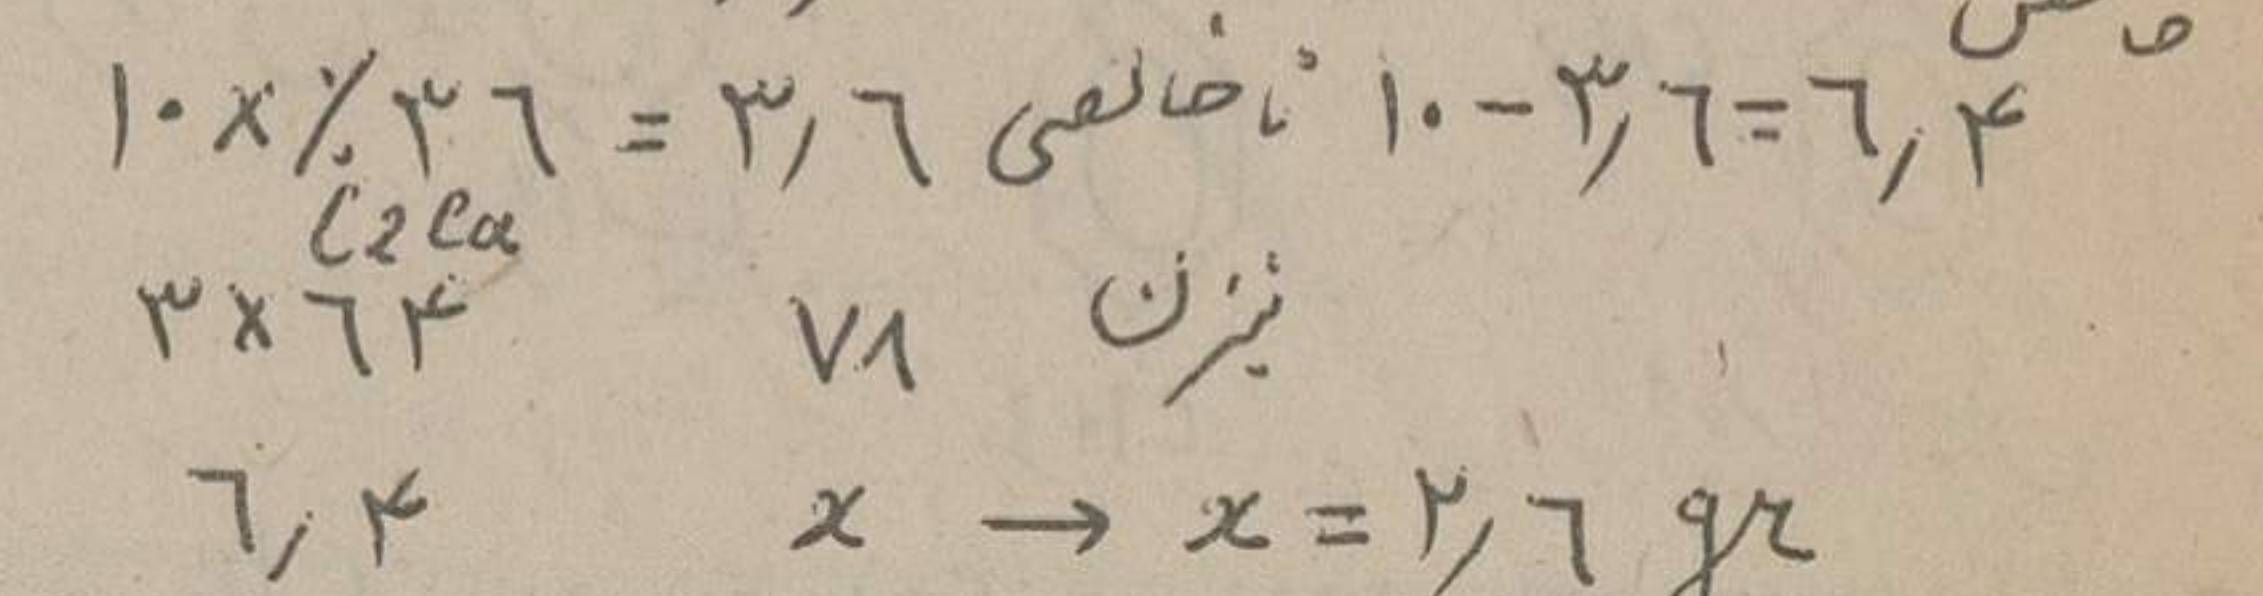 خالص
۱۰ × ٪۳۶ = ۳,۶ ناخالصی ۱۰ - ۳,۶ = ۶,۴
C2Ca
۳ × ۶۴ ۷۸ بنزن
۶,۴ x → x = ۲,۶ gr